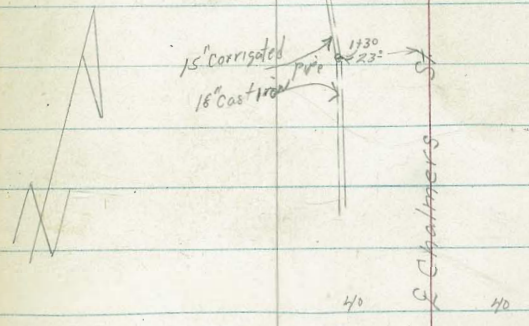 15" Corrigated
Pipe
18" Cast iron
1+30
23±
℄ Chalmers St
40
40